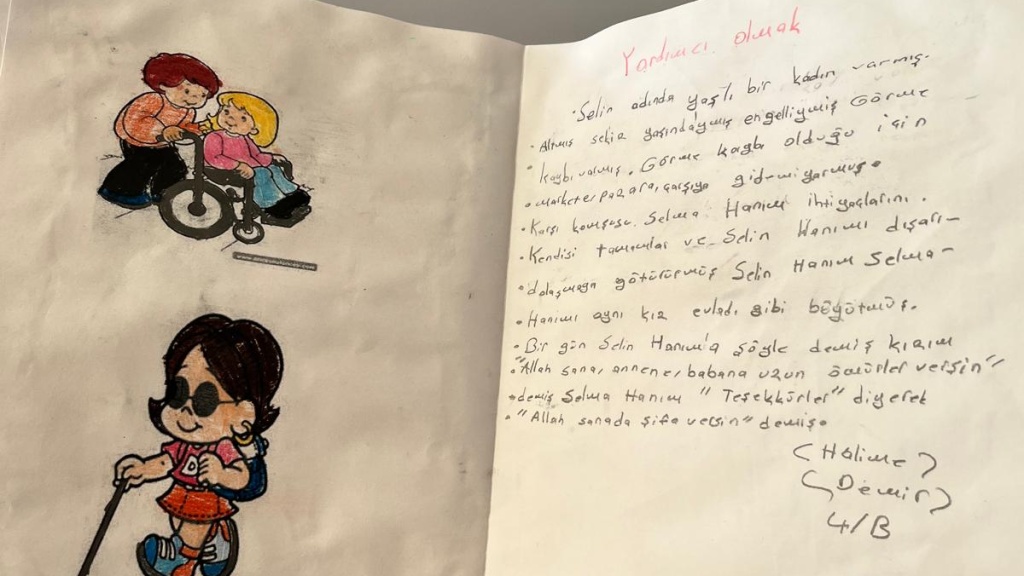 Yardımcı olmak
• Selin adında yaşlı bir kadın varmış.
• Altmış sekiz yaşındaymış engelliymiş Görme
• kaybı varmış. Görme kaybı olduğu için
• markete, pazara, çarşıya gidemiyormuş.
• Karşı komşusu Selma Hanım ihtiyaçlarını.
• Kendisi tamamlar ve Selin Hanımı dışarı-
• dolaşmaya götürürmüş Selin Hanım Selma-
• Hanımı aynı kız evladı gibi böğütmüş.
• Bir gün Selin Hanım'a şöyle demiş kızım
• "Allah sana, annene, babana uzun ömürler versin"
• demiş Selma Hanım "Teşekkürler" diyerek
• "Allah sanada şifa versin" demiş.
(Halime)
(Demir)
4/B